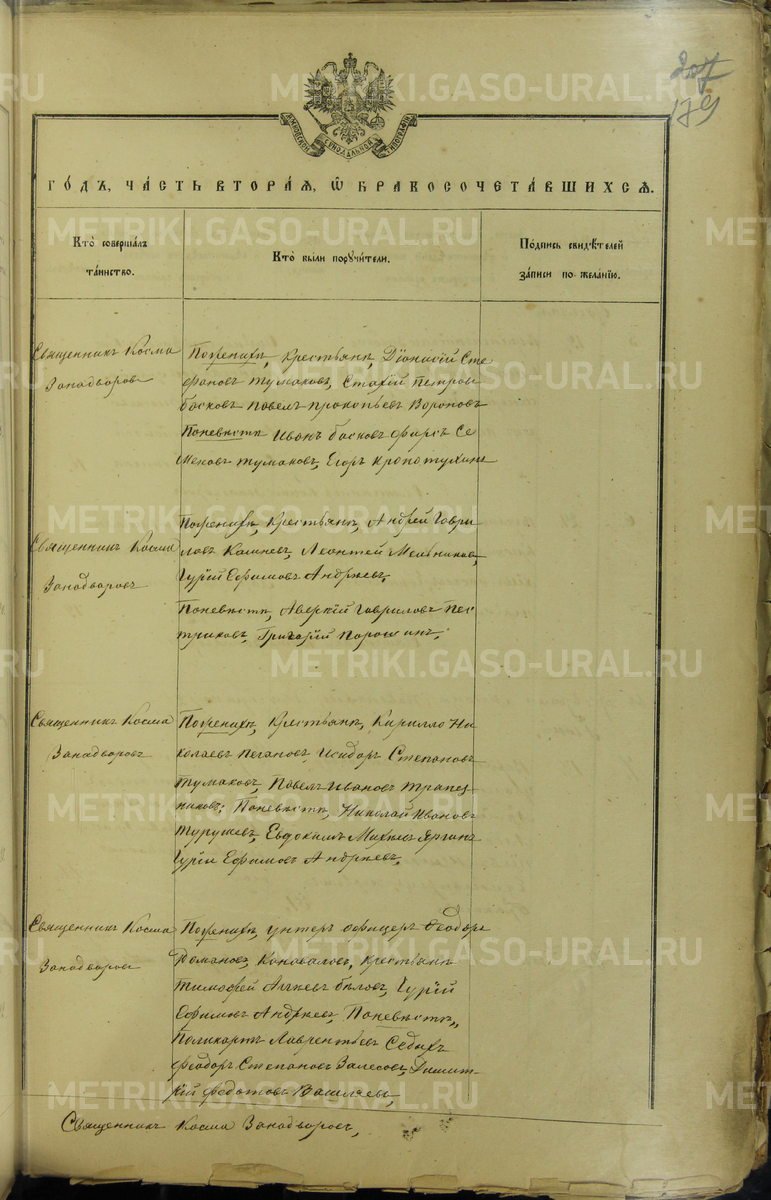 207
179
МОСКОВСКОЙ СѴНОДАЛЬНОЙ ТИПОГРАФІИ
ГО́ДЪ, ЧА́СТЬ ВТОРА́Я, Ѡ БРАКОСОЧЕТА́ВШИХСЯ.
Кто̀ соверша́лъ
та́инство.
Кто̀ бы́ли порꙋчи́тели.
По́дпись свидѣ́телей
за́писи по жела́нїю.
Священникъ Косма
Занадворовъ
По женихѣ, крестьянѣ, Дїонисїй Сте
фановъ Тумаковъ, Стахїй Петровъ
басковъ Павелъ Прокопьевъ Вороновъ
По невѣстѣ Иванъ басковъ Фирсъ Се
меновъ Тумаковъ, Егоръ Кропотухинъ
Священникъ Косма
Занадворовъ
По женихѣ, крестьянѣ, Андрей Гаври
ловъ Калпеевъ, Леонтей Мельниковъ,
Гурїй Ефимовъ Андреевъ,
По невѣстѣ, Аверкїй Гавриловъ Пес
триковъ, Григорїй Порошинъ,
Священникъ Косма
Занадворовъ
По женихѣ, крестьянѣ, Кирилло Ни
колаевъ Пегановъ, Исидоръ Степановъ
Тумаковъ, Павелъ Ивановъ Трапез
никовъ; По невѣстѣ, Николай Ивановъ
Турушевъ, Евдокимъ Яргинъ
Гурїй Ефимовъ Андреевъ,
Священникъ Косма
Занадворовъ
По женихѣ, унтеръ офицеръ Феодоръ
Романовъ Коновалов, крестьянѣ
Тимофей бѣловъ, Гурїй
Ефимовъ Андреевъ, По невѣстѣ,
Поликарпъ Лаврентьевъ Седыхъ
Феодоръ Степановъ Залесовъ, Димит
рїй Федотовъ Васильевъ,
Священникъ Косма Занадворовъ,
METRIKI.GASO-URAL.RU